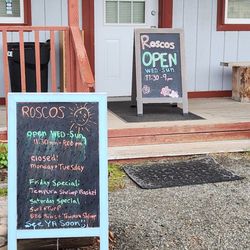 Roscos
OPEN
WED-SUN
11:30-8PM
ROSCOS
OPEN WED-SUN
11:30am / 8:00pm
closed!
Monday & Tuesday
Friday Special:
Tempura Shrimp Basket
Saturday Special
Surf & Turf
BBQ Ribs & Tempura Shrimp
See Ya Soon!
OPEN